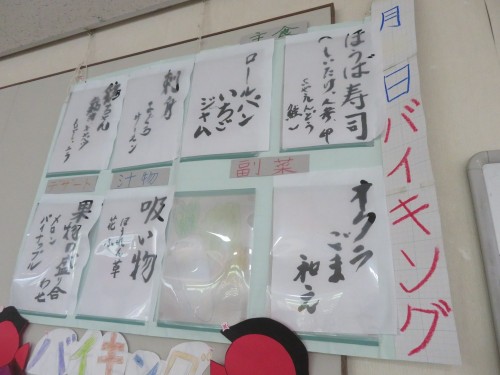 月 日 バイキング
主食
ほうば寿司
(しいたけ、人参、卵
さやえんどう
鮭)
ロールパン
いちご
ジャム
刺身
まぐろ
サーモン
デザート
汁物
副菜
オクラ
ごま
和え
吸い物
果物の盛り合わせ
メロン
パイナップル
バイキング